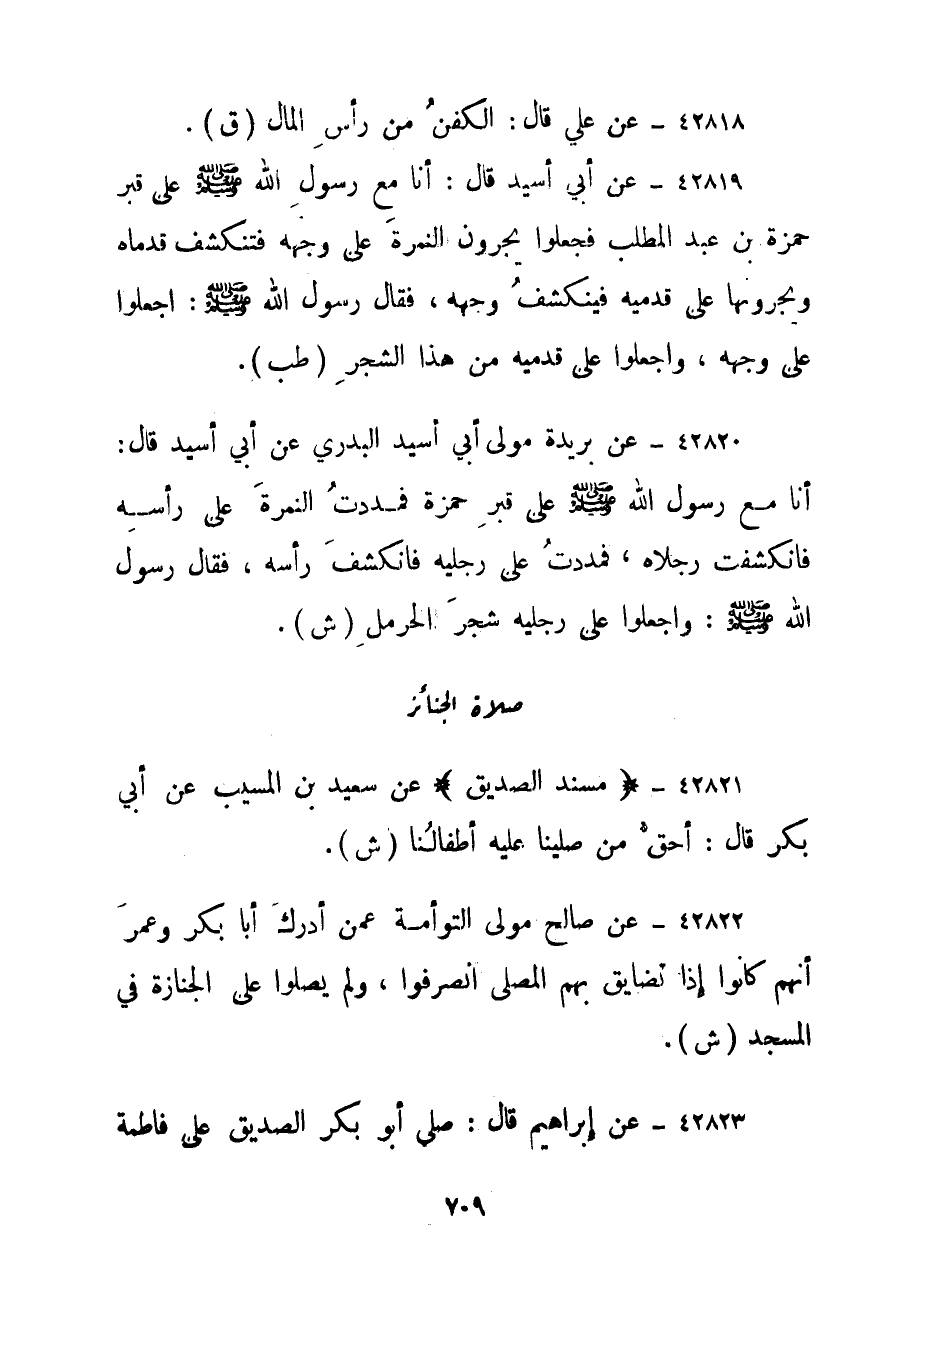 ٤٢٨١٨ ـ عن علي قال : الكفنُ من رأسِ المال ( ق ) .
٤٢٨١٩ ـ عن أبي أسيد قال : أنا مع رسولِ الله ﷺ على قبر
حمزة بن عبد المطلب فجعلوا يجرون النمرةَ على وجهه فتنكشف قدماه
ويجرونها على قدميه فينكشفُ وجهه ، فقال رسول الله ﷺ : اجعلوا
على وجهه ، واجعلوا على قدميه من هذا الشجرِ ( طب ) .
٤٢٨٢٠ ـ عن بريدة مولى أبي أسيد البدري عن أبي أسيد قال :
أنا مـع رسول الله ﷺ على قبرِ حمزة فمـددتُ النمرةَ على رأسِـه
فانكشفت رجلاه ، فمددتُ على رجليه فانكشفَ رأسه ، فقال رسول
الله ﷺ : واجعلوا على رجليه شجرَ الحرملِ ( ش ) .
صلاة الجنائز
٤٢٨٢١ ـ ﴿ مسند الصديق ﴾ عن سعيد بن المسيب عن أبي
بكر قال : أحقُّ من صلينا عليه أطفالُنا ( ش ) .
٤٢٨٢٢ ـ عن صالح مولى التوأمـة عمن أدركَ أبا بكر وعمرَ
أنهم كانوا إذا تضايق بهم المصلى انصرفوا ، ولم يصلوا على الجنازة في
المسجد ( ش ) .
٤٢٨٢٣ ـ عن إبراهيم قال : صلي أبو بكر الصديق على فاطمة
٧٠٩